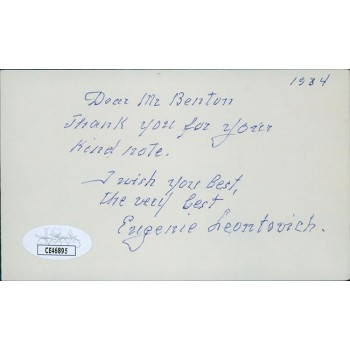 1984
Dear Mr Benton
Thank you for your
kind note.
I wish you best,
the very best
Eugenie Leontovich.
CE46895